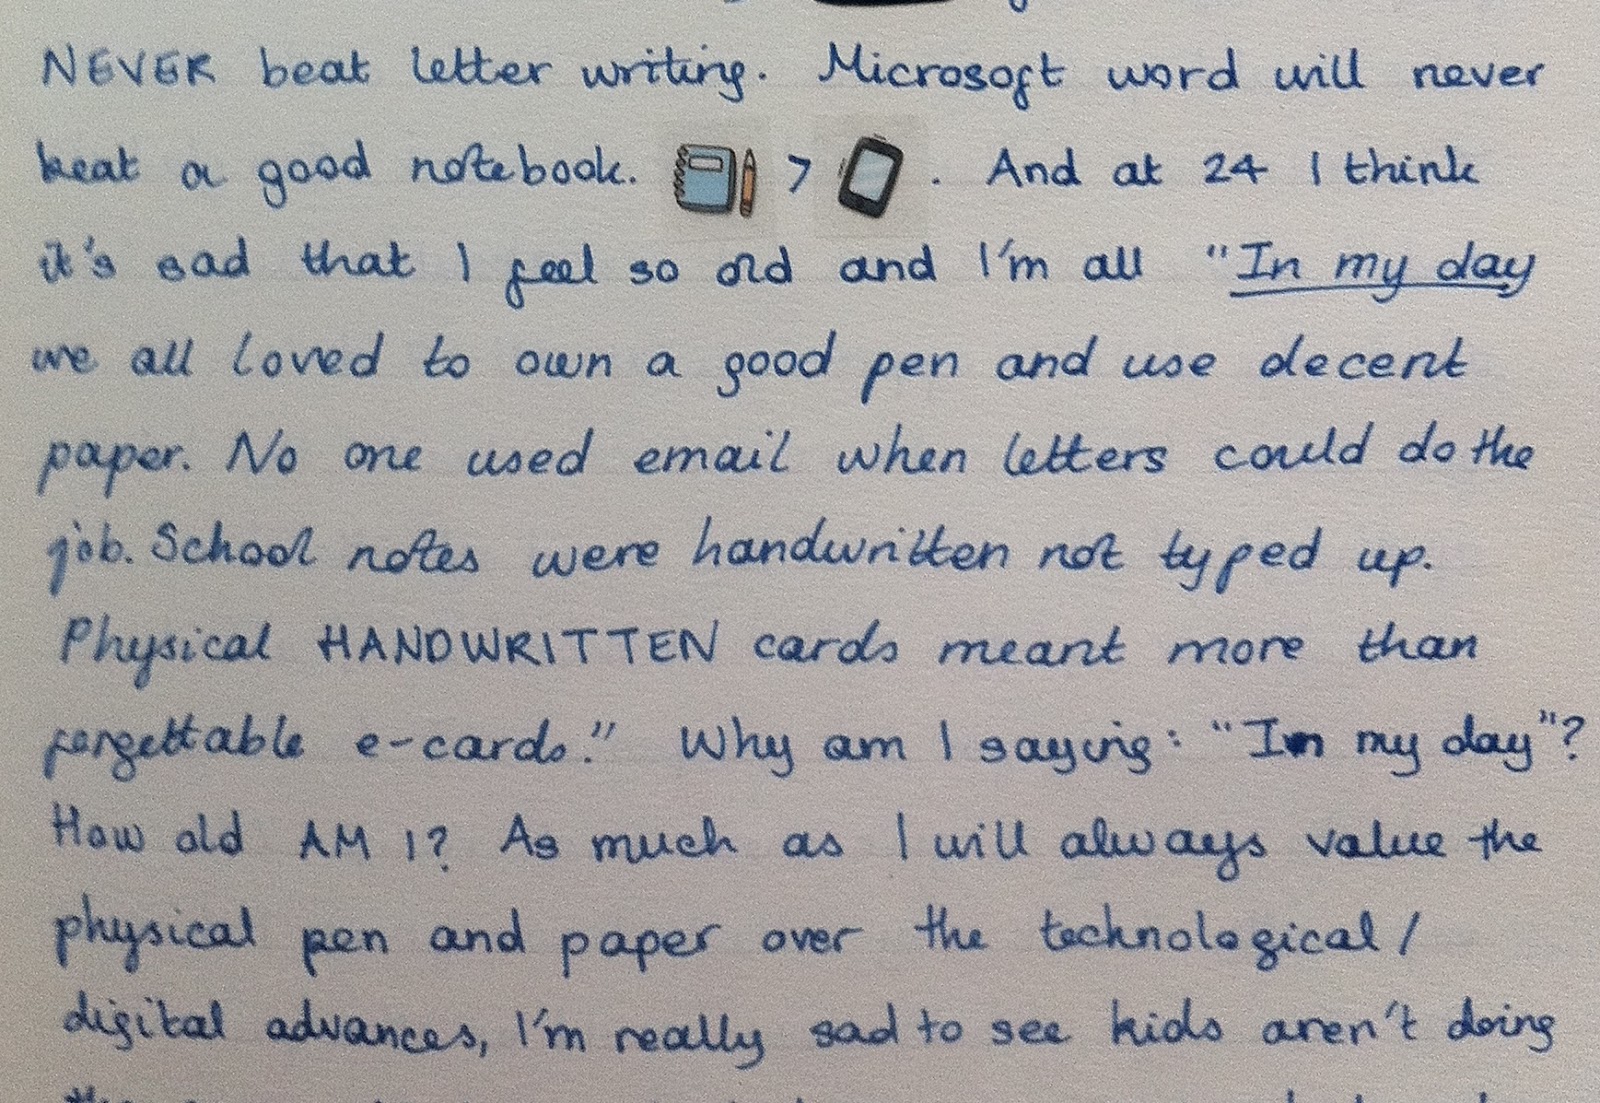 NEVER beat letter writing. Microsoft word will never
beat a good notebook. > . And at 24 I think
it's sad that I feel so old and I'm all "In my day
we all loved to own a good pen and use decent
paper. No one used email when letters could do the
job. School notes were handwritten not typed up.
Physical HANDWRITTEN cards meant more than
forgettable e-cards." Why am I saying: "In my day"?
How old AM I? As much as I will always value the
physical pen and paper over the technological/
digital advances, I'm really sad to see kids aren't doing